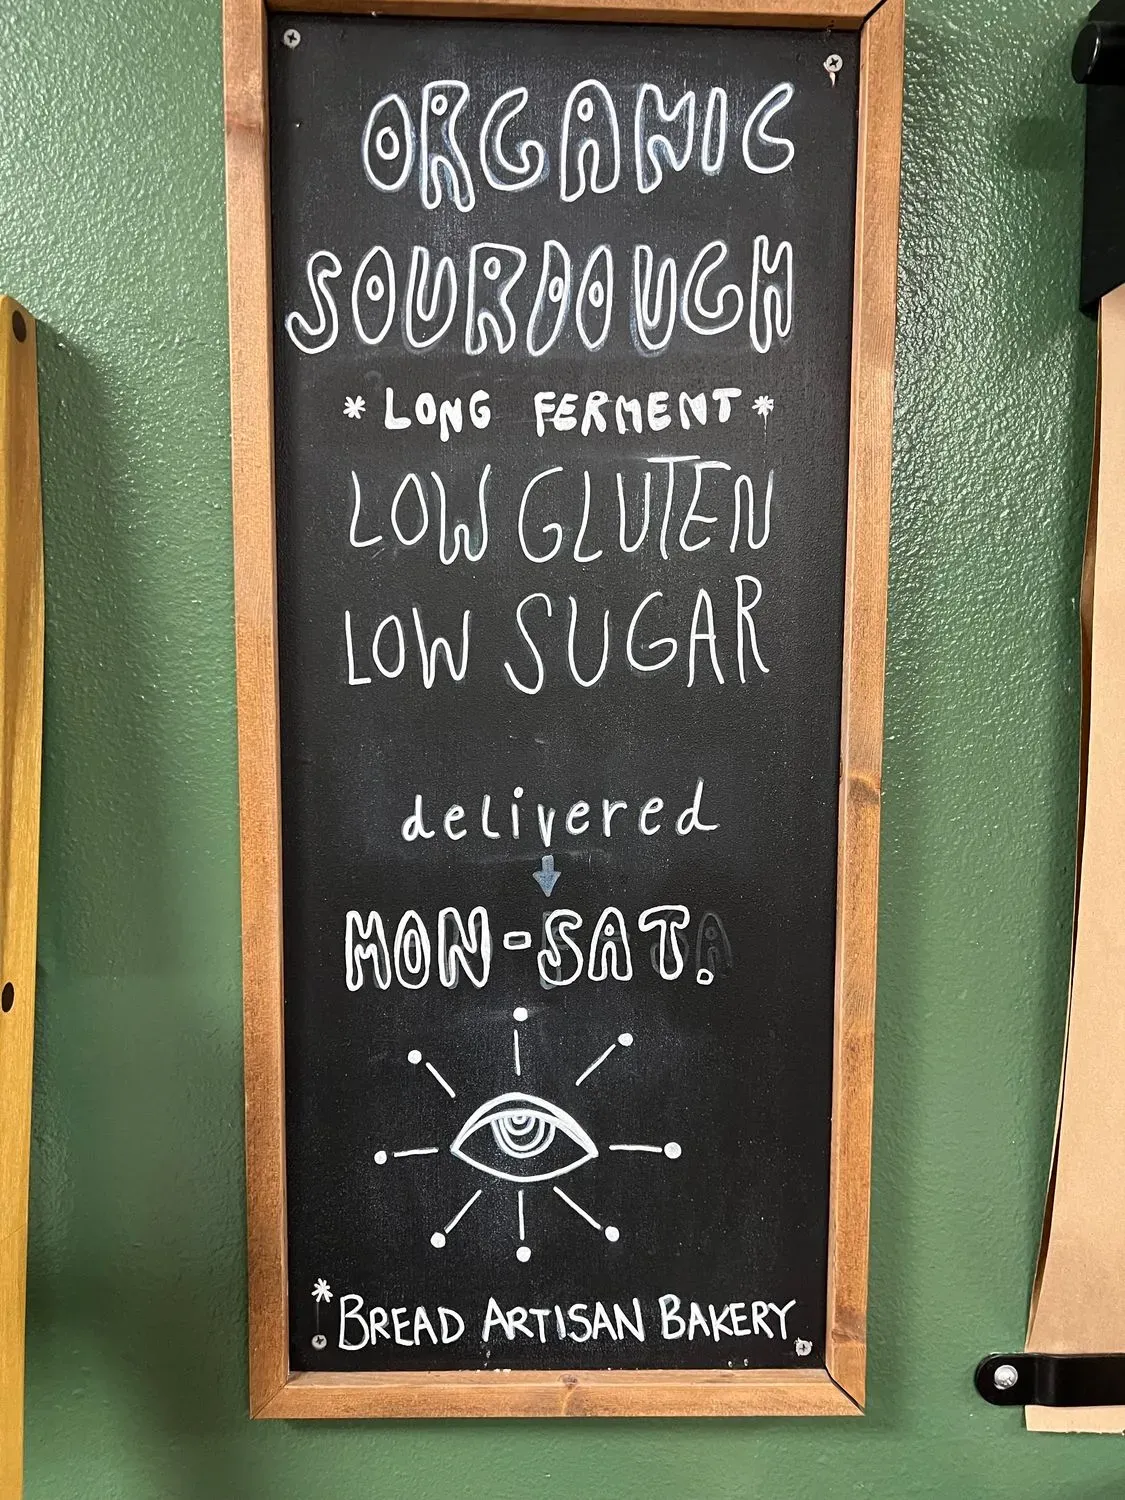 ORGANIC
SOURDOUGH
* LONG FERMENT *
LOW GLUTEN
LOW SUGAR
delivered
MON-SAT.
* BREAD ARTISAN BAKERY